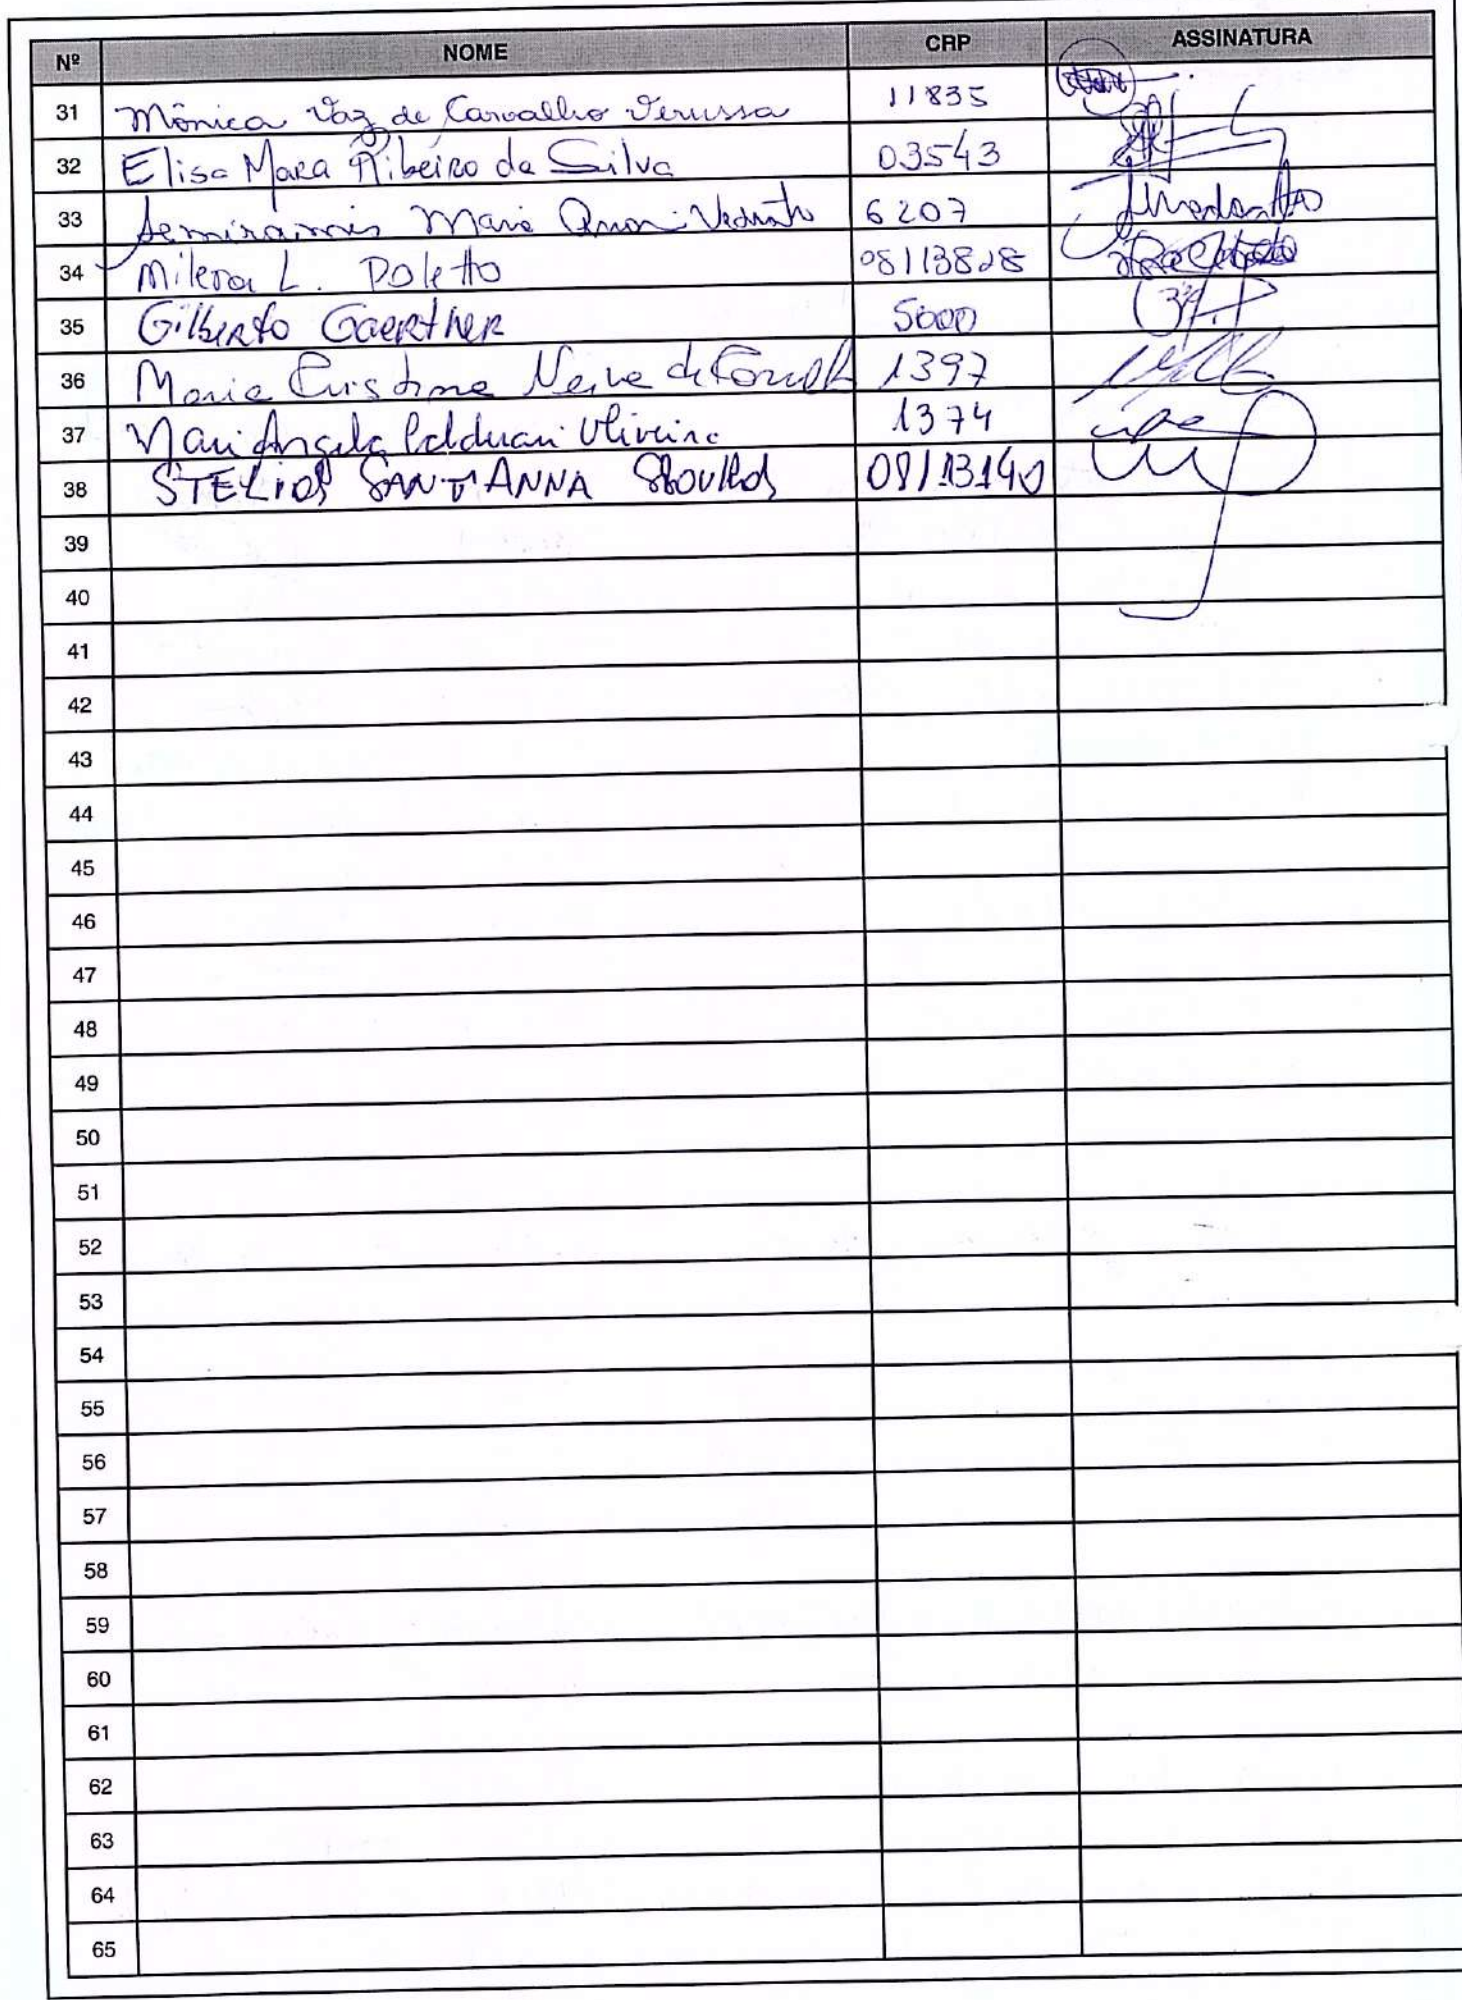 Nº NOME CRP ASSINATURA
31 Mônica Vaz de Carvalho Verussa 11835
32 Elisa Mara Ribeiro da Silva 03543
33 Semiramis Maria 6207
34 Milena L. Poletto 08/13828
35 Gilberto Gaertner 5000
36 Maria Cristina Neiva de 1397
37 Mari Angela Oliveira 1374
38 STELIOS SANT'ANNA 08/13140
39
40
41
42
43
44
45
46
47
48
49
50
51
52
53
54
55
56
57
58
59
60
61
62
63
64
65